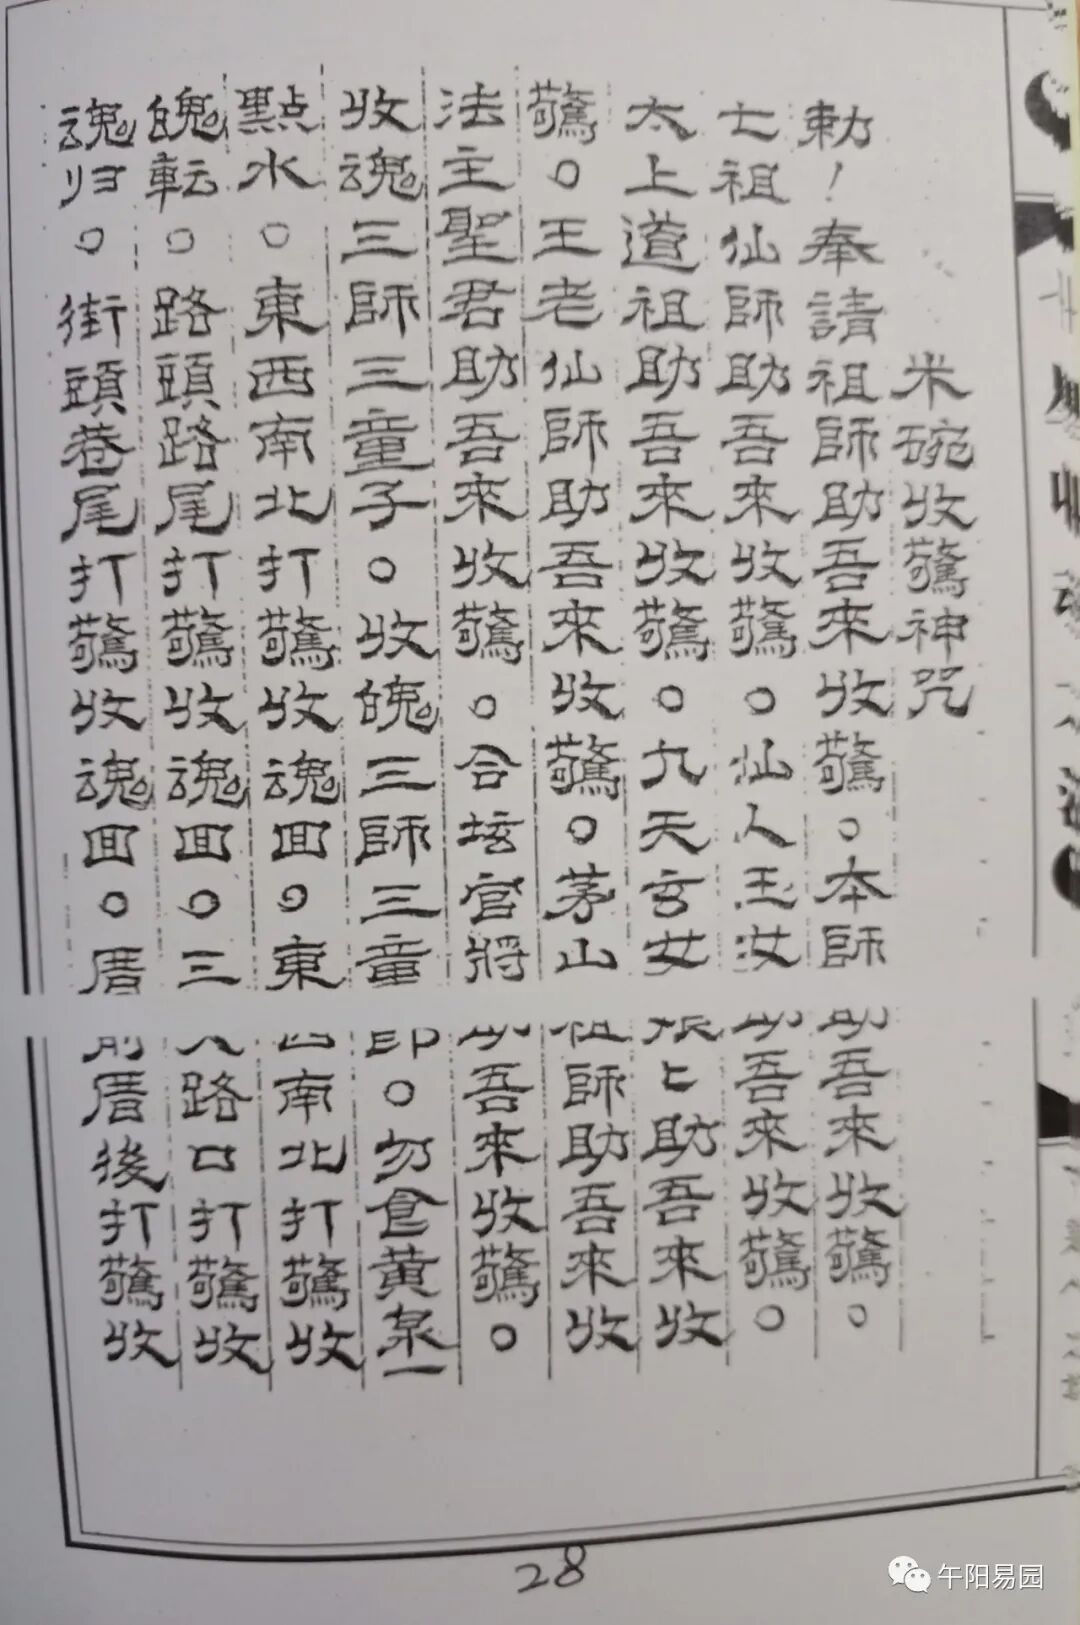 米碗收驚神咒
勅！奉請祖師助吾來收驚。本師助吾來收驚。
七祖仙師助吾來收驚。仙人玉汝助吾來收驚。
太上道祖助吾來收驚。九天玄女娘匕助吾來收
驚。王老仙師助吾來收驚。茅山祖師助吾來收
法主聖君助吾來收驚。合坛官將助吾來收驚。
收魂三師三童子。收魄三師三童郎。勿食黃泉一
點水。東西南北打驚收魂回。東西南北打驚收
魄転。路頭路尾打驚收魂回。三叉路口打驚收
魂归。街頭巷尾打驚收魂回。厝前厝後打驚收
28
午阳易园